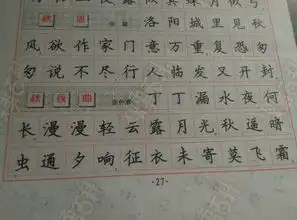 秋思 洛阳城里见秋
风欲作家门意万重复恐匆
匆说不尽行人临发又开封
秋夜曲 丁丁漏水夜何
长漫漫轻云露月光秋逼暗
虫通夕响征衣未寄莫飞霜
·27·